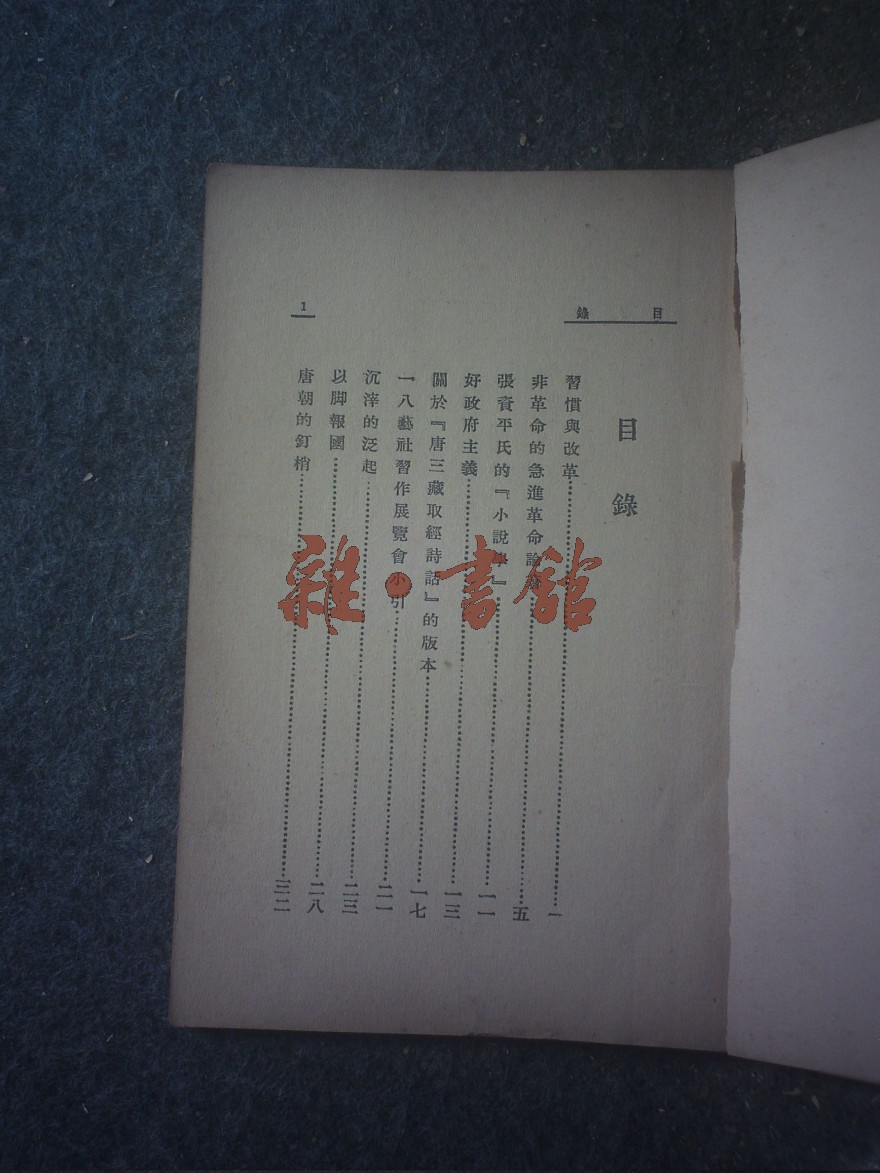 目錄
1
目錄
習慣與改革……一
非革命的急進革命論者……五
張資平氏的『小說學』……一一
好政府主義……一三
關於『唐三藏取經詩話』的版本……一七
一八藝社習作展覽會小引……二一
沉滓的泛起……二三
以脚報國……二八
唐朝的釘梢……三二
雜·書館